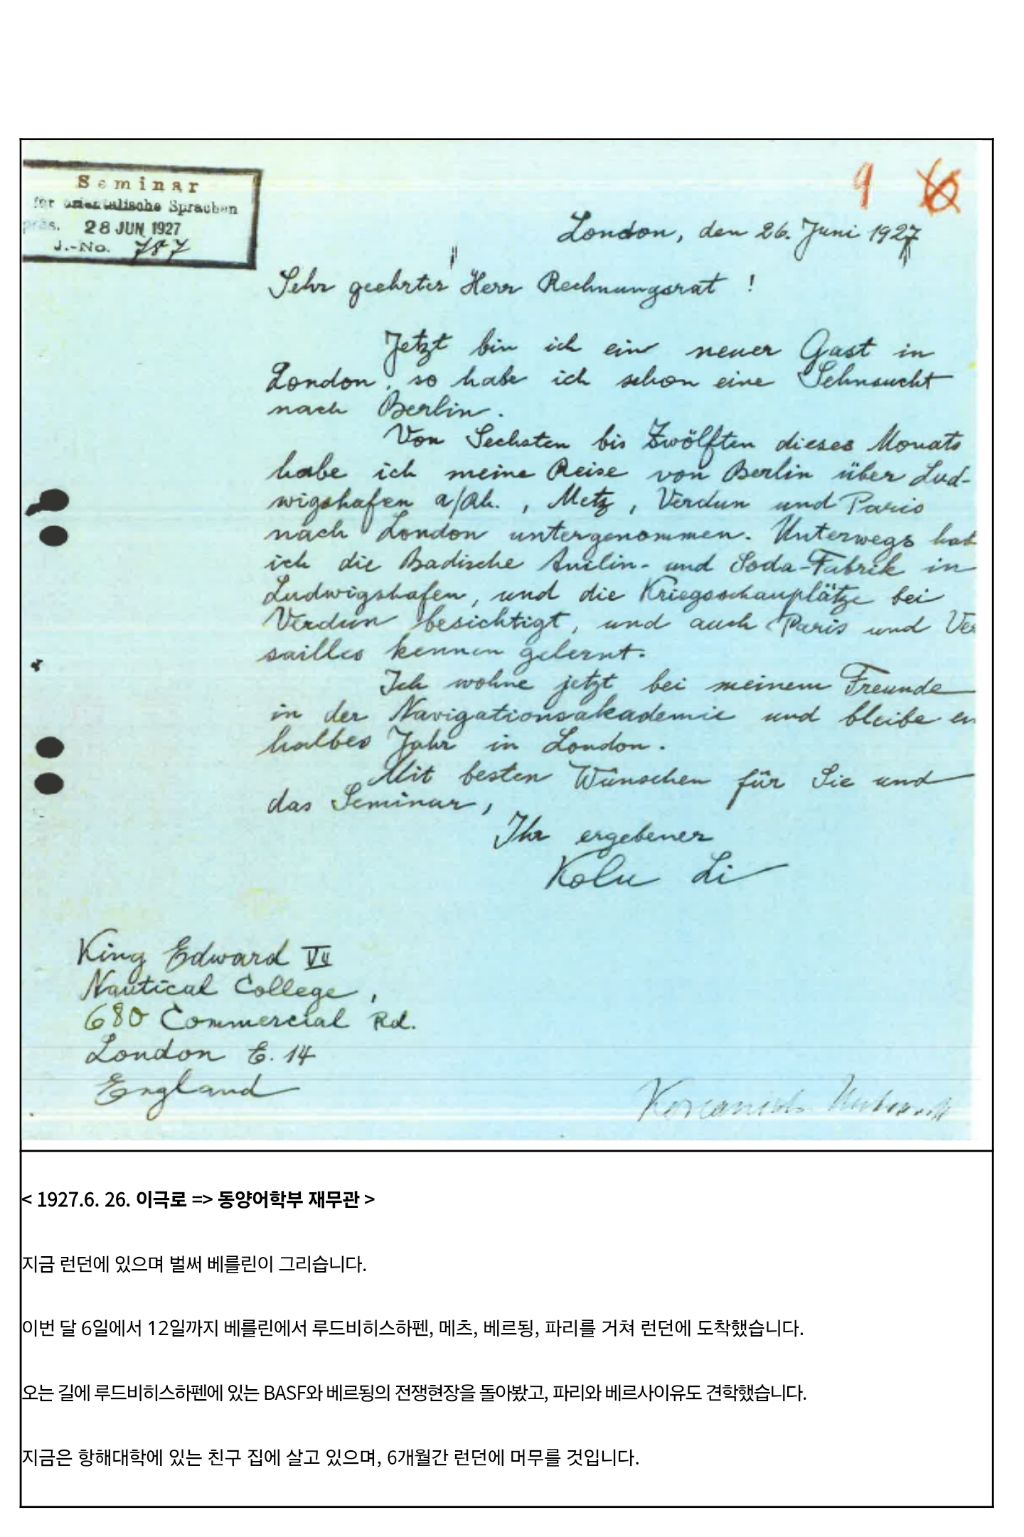 Seminar
für orientalische Sprachen
präs. 28 JUN 1927
J.-No. 787
9
London, den 26. Juni 1927
Sehr geehrter Herr Rechnungsrat !
Jetzt bin ich ein neuer Gast in
London, so habe ich schon eine Sehnsucht
nach Berlin.
Von Sechsten bis Zwölften dieses Monats
habe ich meine Reise von Berlin über Lud-
wigshafen a/Rh. , Metz , Verdun und Paris
nach London unternommen. Unterwegs hab
ich die Badische Anilin- und Soda-Fabrik in
Ludwigshafen, und die Kriegsschauplätze bei
Verdun besichtigt, und auch Paris und Ver
sailles kennen gelernt.
Ich wohne jetzt bei meinem Freunde
in der Navigationsakademie und bleibe ein
halbes Jahr in London.
Mit besten Wünschen für Sie und
das Seminar,
Ihr ergebener
Kolu Li
King Edward VII
Nautical College ,
680 Commercial Rd.
London E. 14
England
< 1927.6. 26. 이극로 => 동양어학부 재무관 >
지금 런던에 있으며 벌써 베를린이 그리습니다.
이번 달 6일에서 12일까지 베를린에서 루드비히스하펜, 메츠, 베르됭, 파리를 거쳐 런던에 도착했습니다.
오는 길에 루드비히스하펜에 있는 BASF와 베르됭의 전쟁현장을 돌아봤고, 파리와 베르사이유도 견학했습니다.
지금은 항해대학에 있는 친구 집에 살고 있으며, 6개월간 런던에 머무를 것입니다.